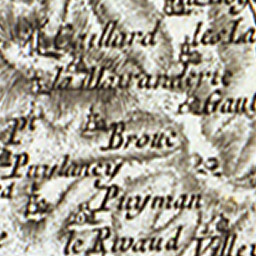 Caillard les La
la Mairanderie
Gaul
pt
Brouc
Puylaney 22
Puyman
le Rivaud Villev